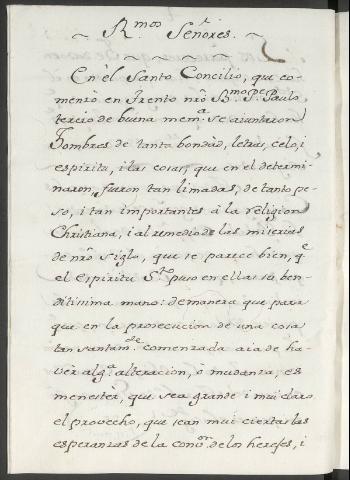 R.mos Señores.
En el Santo Concilio, que co-
menzò en Trento nrõ B.mo P.e Paulo
tercio de buena mem.a se aiuntaron
Hombres de tanta bondàd, letras, celo, i
espiritu, i las cosas, que en el determi-
naron, fueron tan limadas, de tanto pe-
so, i tan importantes à la religion
Christiana, i al remedio de las miserias
de nrõ siglo, que se parece bien, q.e
el Espiritu S.to puso en ellas su ben-
ditissima mano: de manera que para
que en la prosecucion de una cosa
tan santam.te comenzada aia de ha-
vèr alg.a alteracion, ò mudanza, es
menestèr, que sea grande i mui claro
el provecho, que sean mui ciertas las
esperanzas de la conv.on de los herejes, i